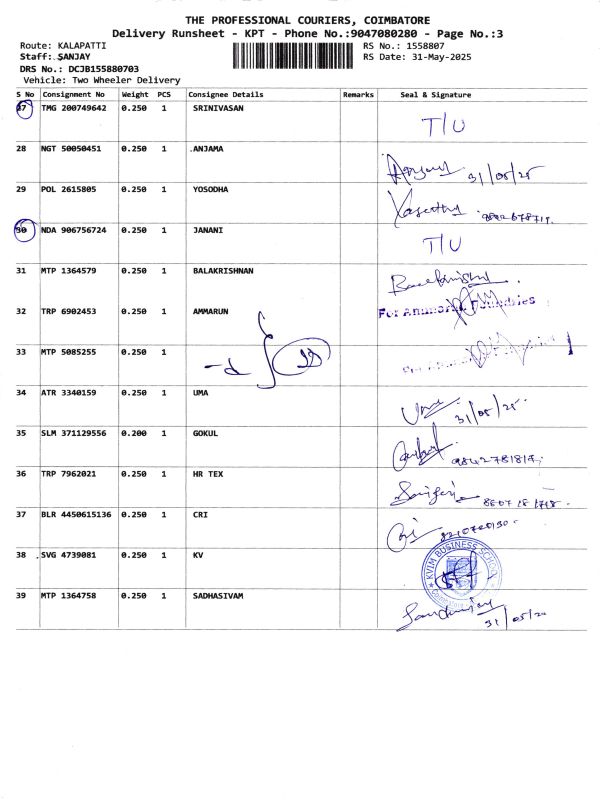 THE PROFESSIONAL COURIERS, COIMBATORE
Delivery Runsheet - KPT - Phone No.:9047080280 - Page No.:3
Route: KALAPATTI RS No.: 1558807
Staff: SANJAY RS Date: 31-May-2025
DRS No.: DCJB155880703
Vehicle: Two Wheeler Delivery
S No Consignment No Weight PCS Consignee Details Remarks Seal & Signature
27 TMG 200749642 0.250 1 SRINIVASAN T/U
28 NGT 50050451 0.250 1 .ANJAMA 31/05/25
29 POL 2615805 0.250 1 YOSODHA
30 NDA 906756724 0.250 1 JANANI T/U
31 MTP 1364579 0.250 1 BALAKRISHNAN
32 TRP 6902453 0.250 1 AMMARUN For
33 MTP 5085255 0.250 1
34 ATR 3340159 0.250 1 UMA Uma 31/05/25
35 SLM 371129556 0.200 1 GOKUL
36 TRP 7962021 0.250 1 HR TEX
37 BLR 4450615136 0.250 1 CRI
38 SVG 4739081 0.250 1 KV KVIM BUSINESS SCHOOL
39 MTP 1364758 0.250 1 SADHASIVAM 31/05/20